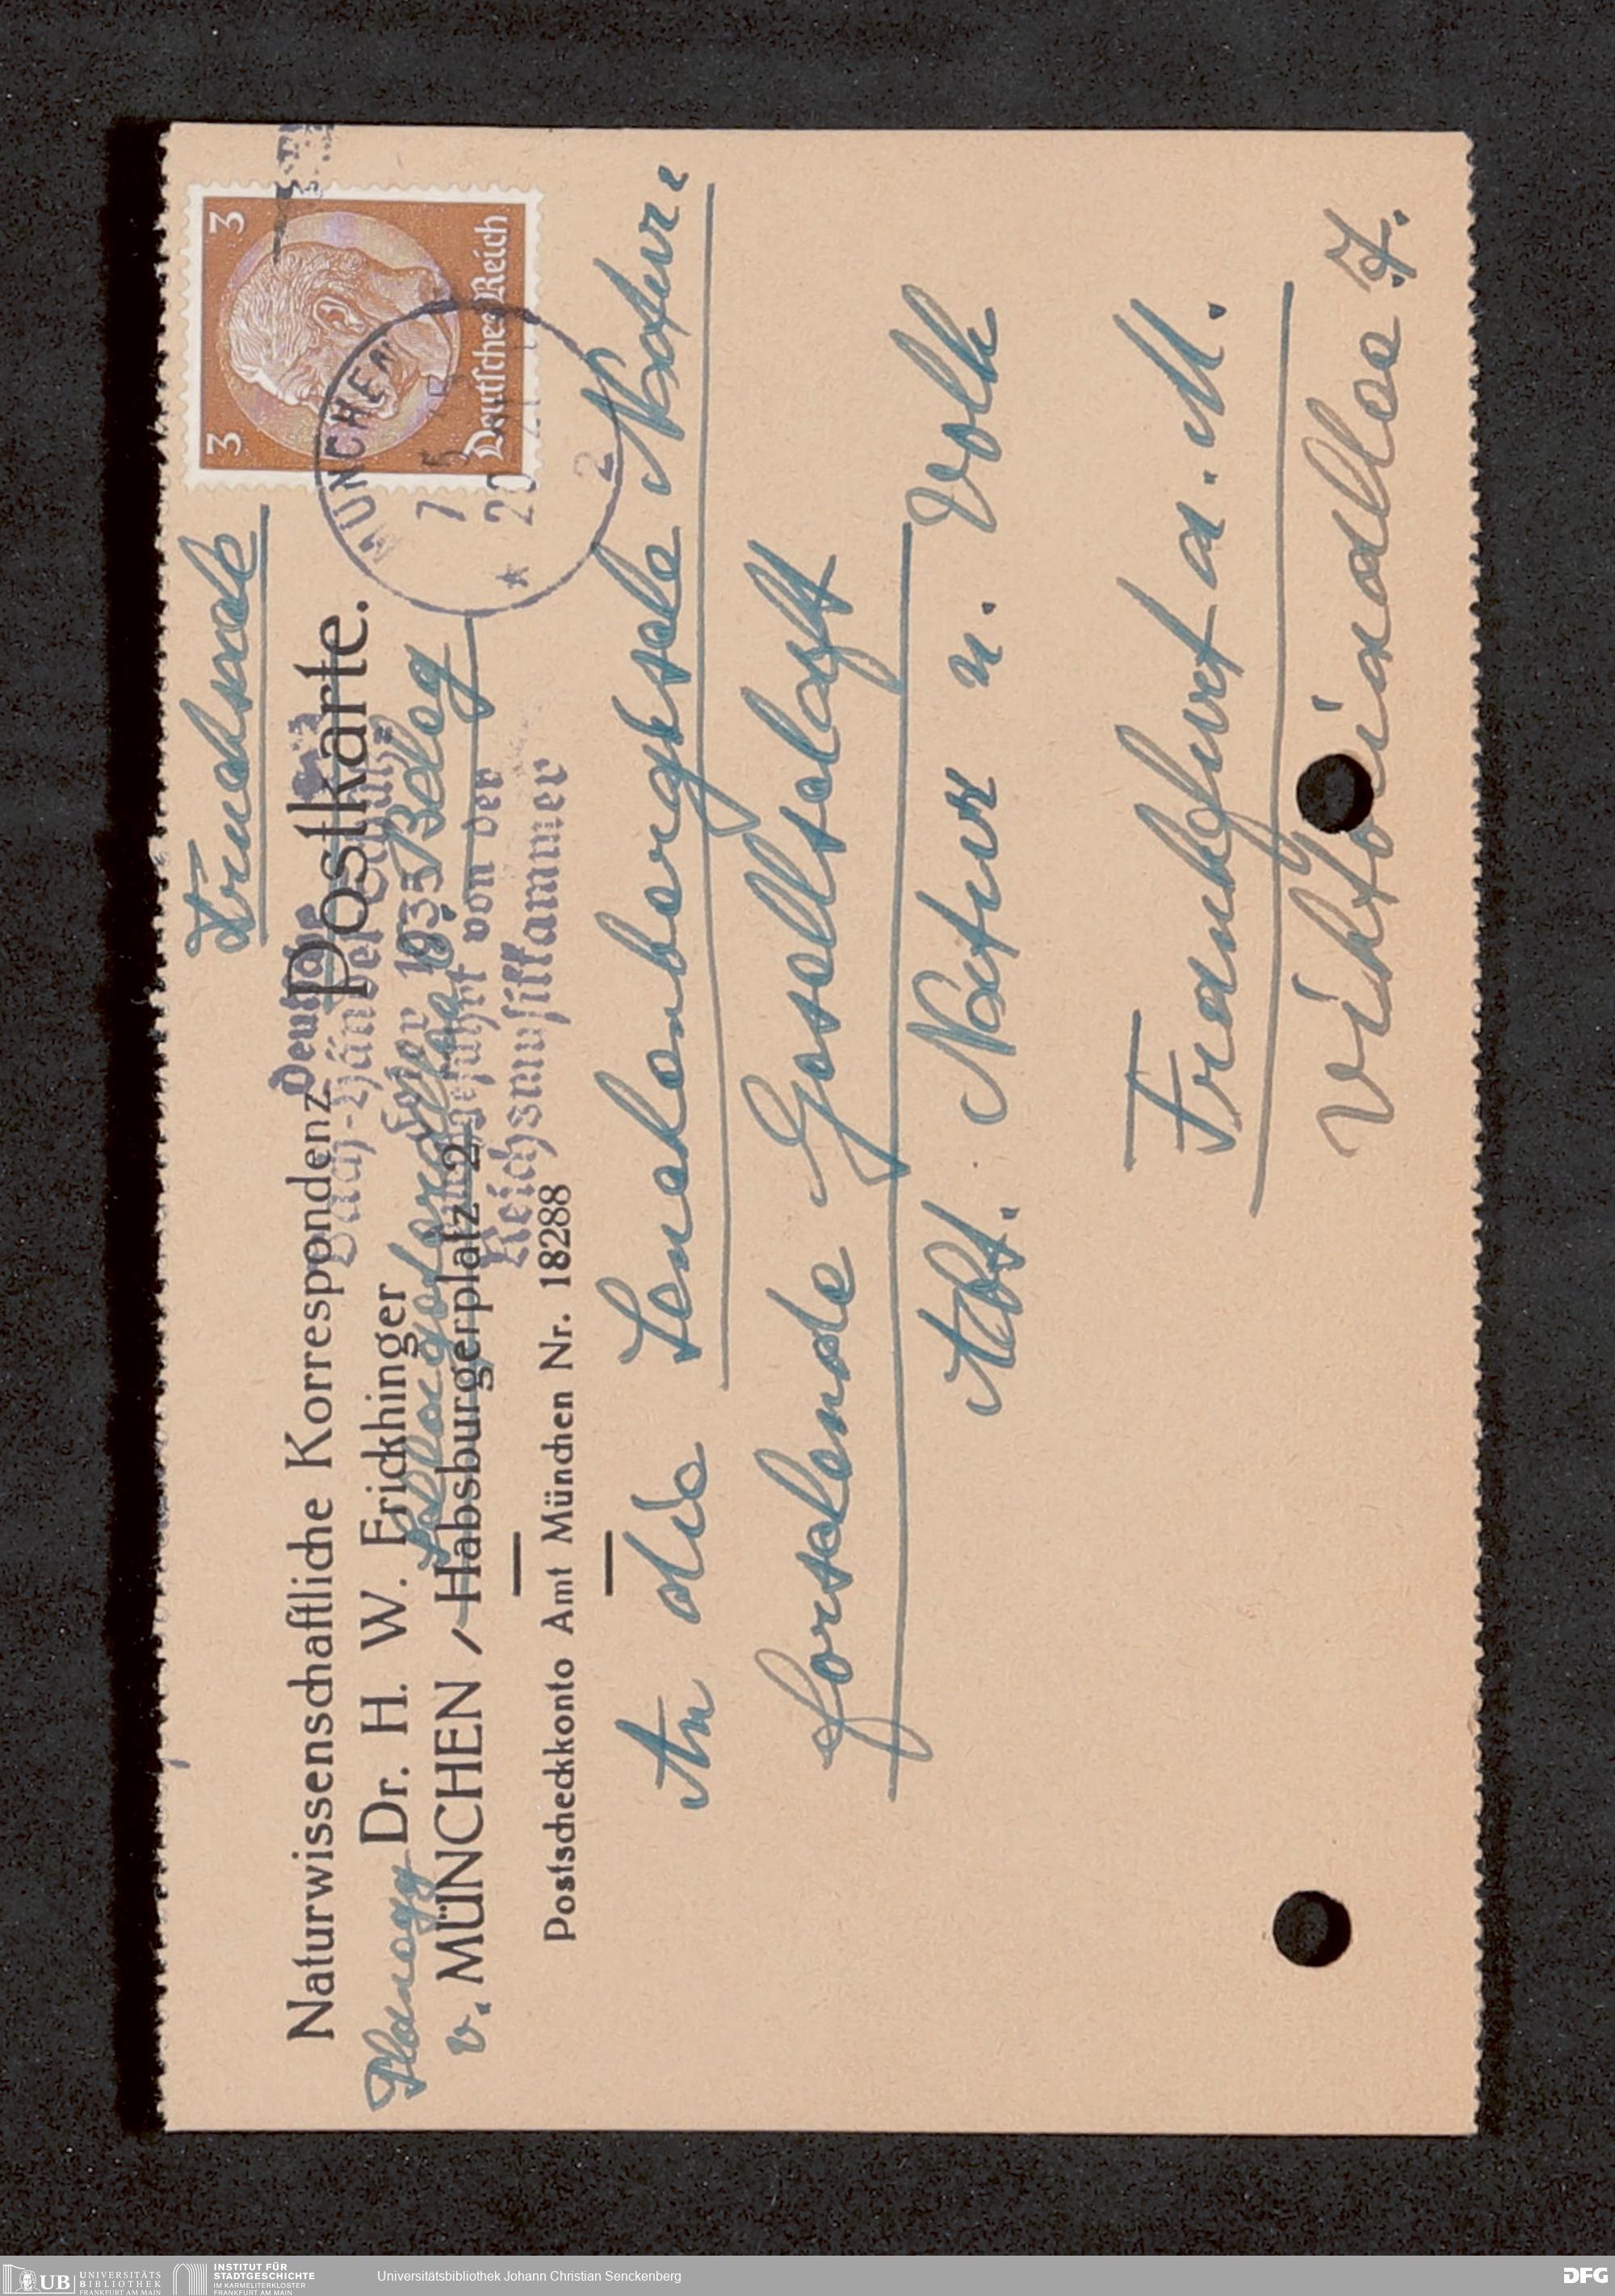 Drucksache
Postkarte.
3 3
Deutsches Reich
MÜNCHEN
2
Naturwissenschaftliche Korrespondenz
Dr. H. W. Frickhinger
Planegg
v. MÜNCHEN, Habsburgerplatz 2
Postscheckkonto Amt München Nr. 18288
Deutsche
Bach-Händel-Schütz
Feier 1935
durchgeführt von der
Reichsmusikkammer
An die Senckenbergische Natur-
forschende Gesellschaft
Abt. Natur u. Volk
Frankfurt a. M.
Viktoriaallee 7.
UB UNIVERSITÄTS
BIBLIOTHEK
FRANKFURT AM MAIN
INSTITUT FÜR
STADTGESCHICHTE
IM KARMELITERKLOSTER
FRANKFURT AM MAIN
Universitätsbibliothek Johann Christian Senckenberg
DFG